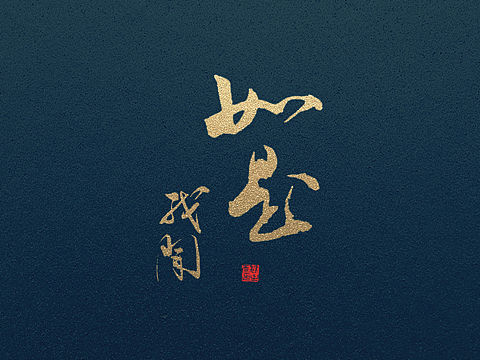 如是
我闻